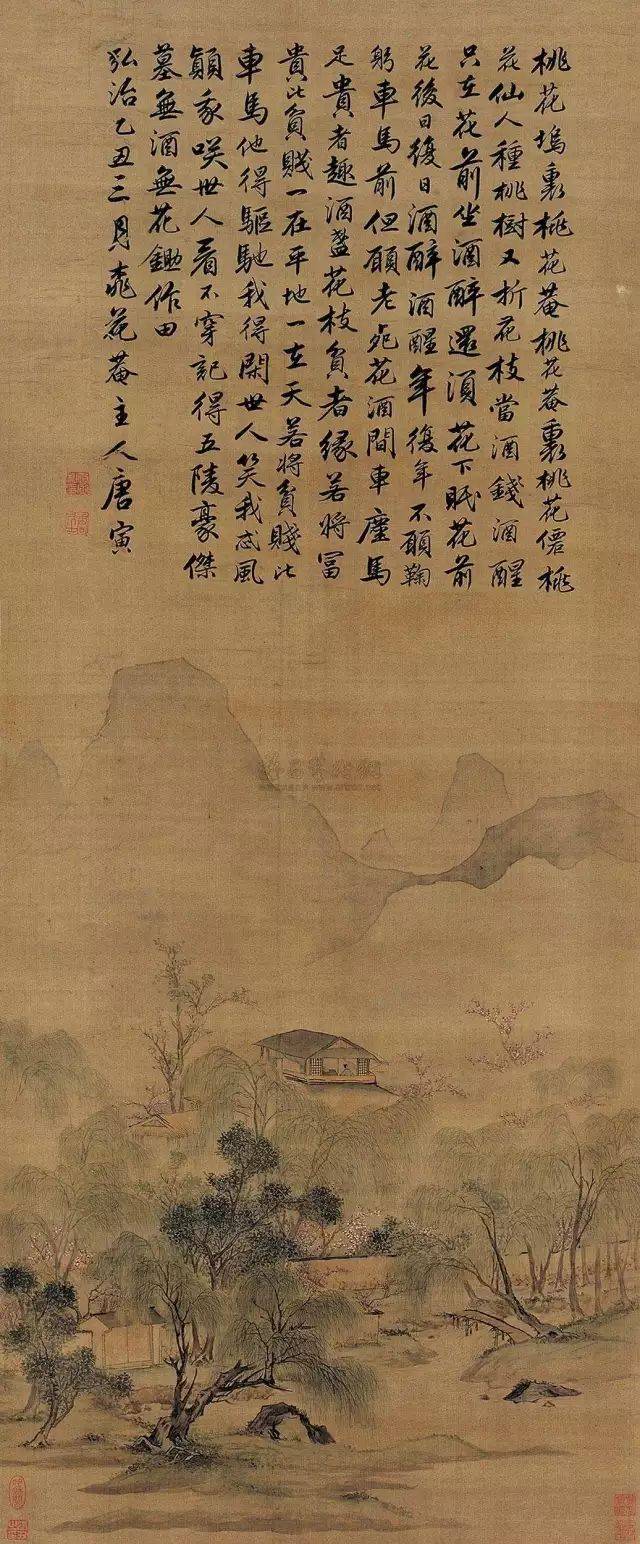 桃花塢裏桃花菴桃花菴裏桃花僊桃
花仙人種桃樹又折花枝當酒錢酒醒
只在花前坐酒醉還湏花下眠花前
花後日復日酒醉酒醒年復年不願鞠
躬車馬前但願老死花酒間車塵馬
足貴者趣酒盞花枝貧者緣若將富
貴比貧賤一在平地一在天若將貧賤比
車馬他得驅馳我得閑世人笑我忒風
顛我咲世人看不穿記得五陵豪傑
墓無酒無花鋤作田
弘治乙丑三月桃花菴主人唐寅